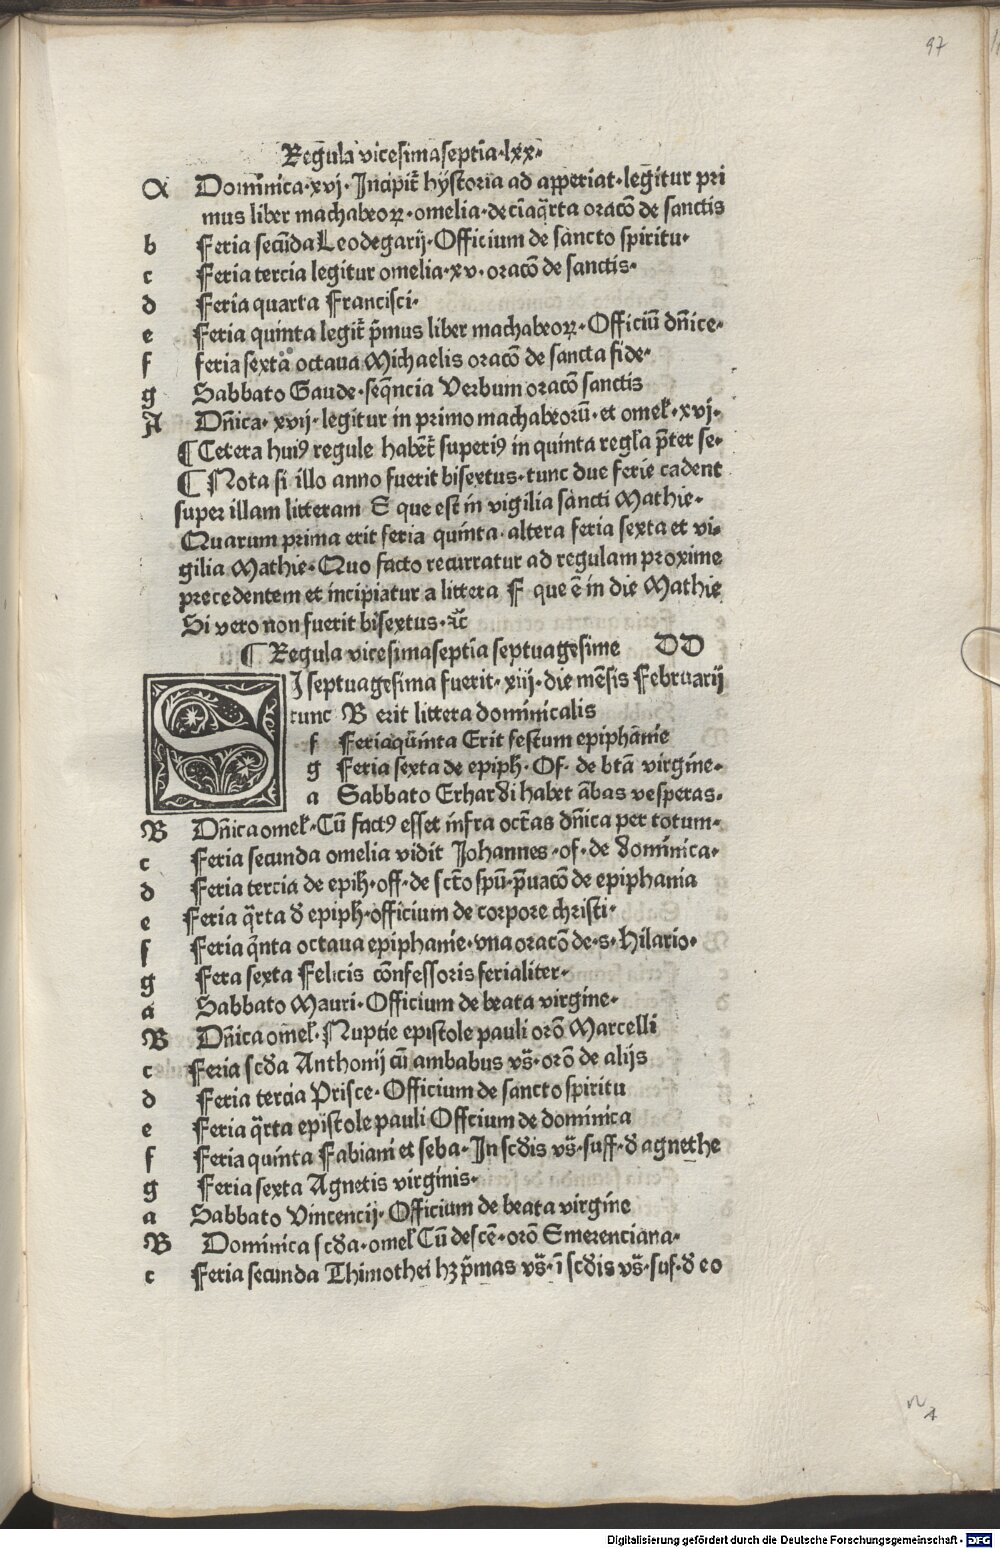 97
Regula vicesimaseptĩa·lxx·
A Dominica·xvj·Incipit̃ hystoria ad apperiat·legitur pri
mus liber machabeoꝝ·omelia·de cĩaq̃rta oracõ de sanctis
b Feria secũda Leodegarij·Officium de sancto spiritu·
c Feria tercia legitur omelia·xv·oracõ de sanctis·
d Feria quarta Francisci·
e Feria quinta legit̃ p̃mus liber machabeoꝝ·Officiũ dñice·
f feria sexta octaua Michaelis oracõ de sancta fide·
g Sabbato Gaude·seq̃ncia Verbum oracõ sanctis
A Dñica·xvij·legitur in primo machabeorũ·et omel̃·xvj·
¶ Cetera huiꝰ regule habet̃ superiꝰ in quinta regl̃a p̃ter se·
¶ Nota si illo anno fuerit bisextus·tunc due ferie cadent
super illam litteram E que est in vigilia sancti Mathie·
Quarum prima erit feria quinta·altera feria sexta et vi·
gilia Mathie·Quo facto recurratur ad regulam proxime
precedentem et incipiatur a littera F que ẽ in die Mathie
Si vero non fuerit bisextus·ꝛc̃
¶ Regula vicesimaseptĩa septuagesime DD
SI septuagesima fuerit·xiij·die mẽsis Februarij
tunc B erit littera dominicalis
f Feria quĩnta Erit festum epiphãnie
g Feria sexta de epiph·Of·de btã virgine·
a Sabbato Erhardi habet ãbas vesperas·
B Dñica omel̃·Cũ factꝰ esset infra oct̃as dñica per totum·
c Feria secunda omelia vidit Johannes·of·de dominica·
d Feria tercia de epiħ·off·de sct̃o spũ·p̃uacõ de epiphania
e Feria q̃rta d̃ epiph·officium de corpore christi·
f Feria q̃nta octaua epiphanie·vna oracõ de·s·Hilario·
g Fera sexta Felicis cõnfessoris ferialiter·
a Sabbato Mauri·Officium de beata virgine·
B Dñica omel̃·Nuptie epistole pauli orõ Marcelli
c Feria scd̃a Anthonij cũ ambabus vs̃·orõ de alijs
d Feria tercia Prisce·Officium de sancto spiritu
e Feria q̃rta epistole pauli Offcium de dominica
f Feria quinta Fabiani et seba·In scd̃is vs̃·suff·d̃ agnethe
g Feria sexta Agnetis virginis·
a Sabbato Vincencij·Officium de beata virgine
B Dominica scd̃a·omel̃ Cũ descẽ·orõ Emerenciana·
c Feria secunda Thimothei hꝫ p̃mas vs̃·ĩ scd̃is vs̃·suf·d̃ eo
n 4
Digitalisierung gefördert durch die Deutsche Forschungsgemeinschaft - DFG